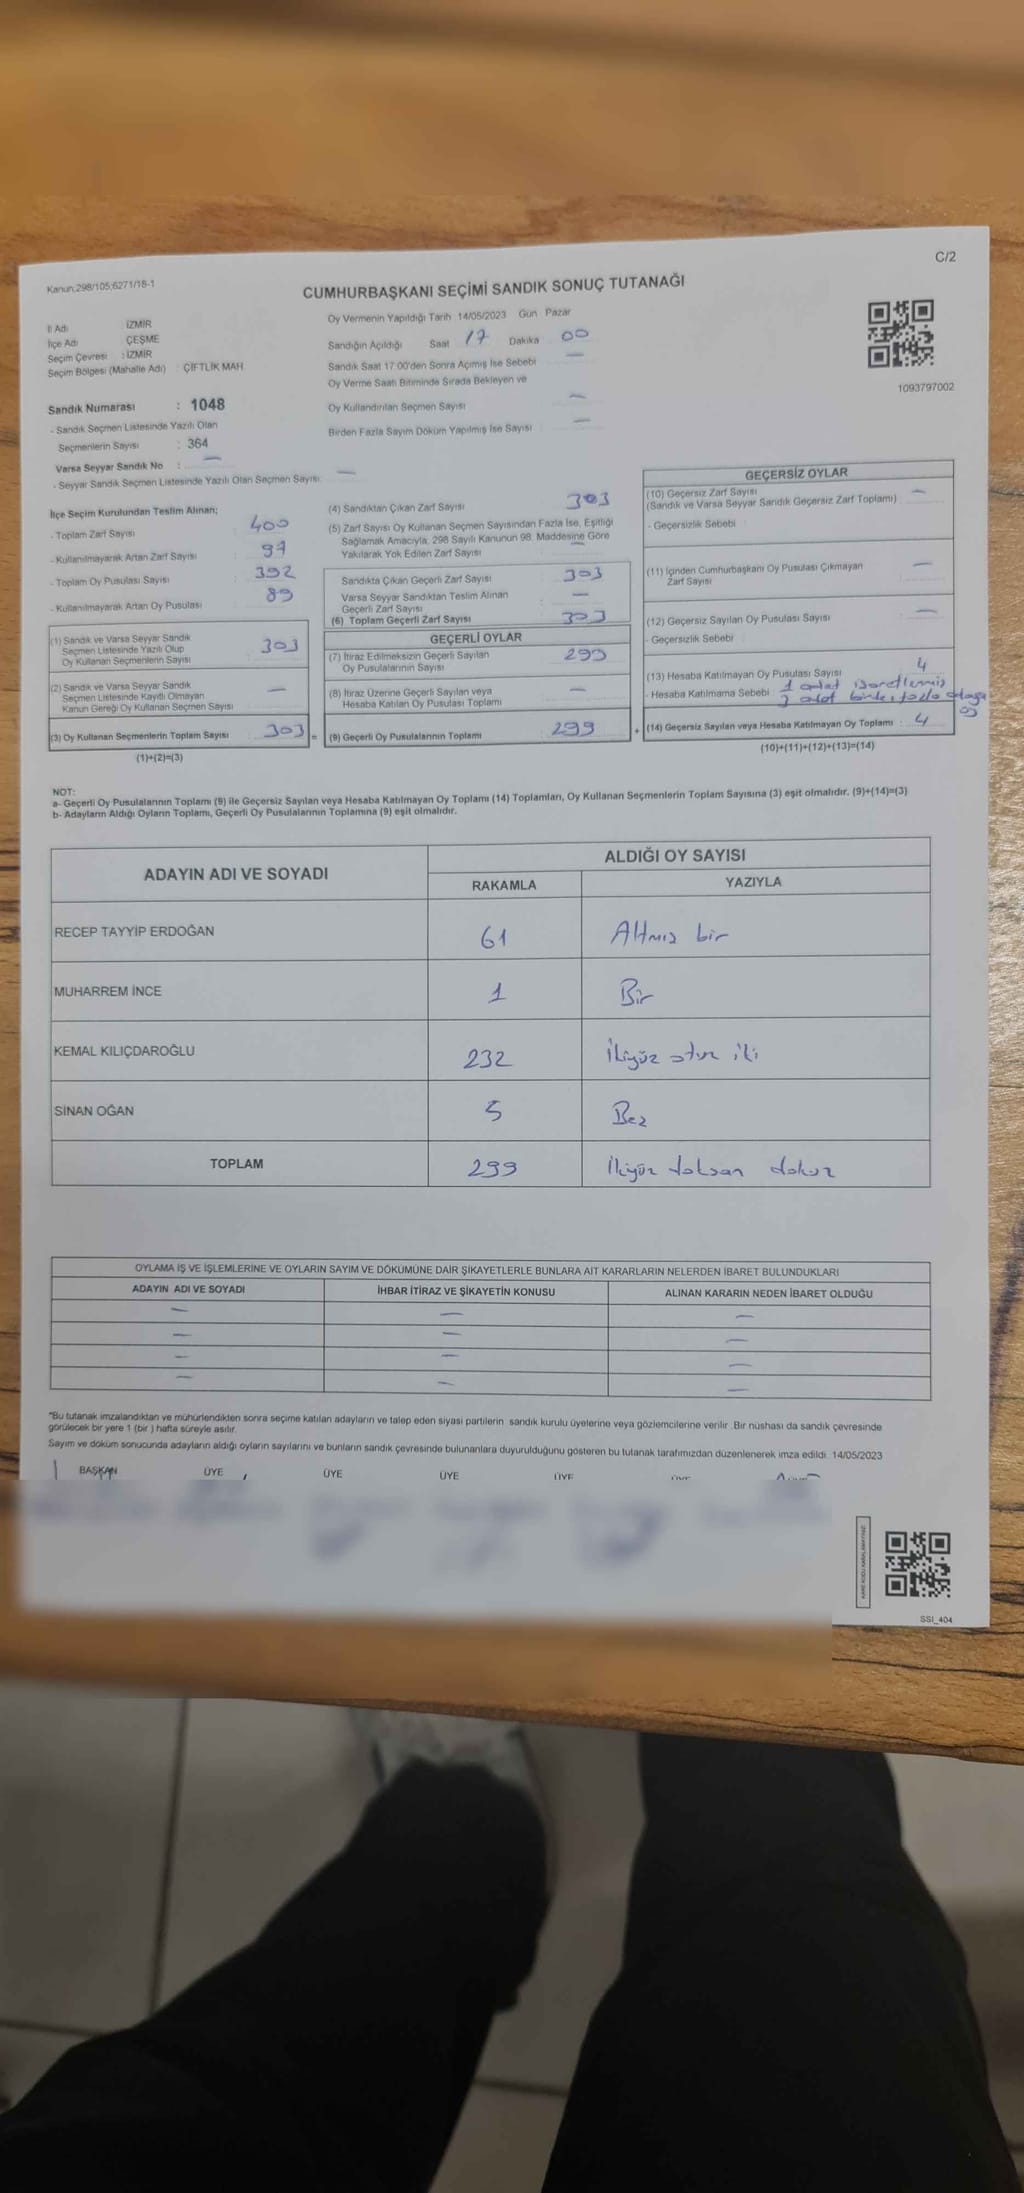 C/2
Kanun;298/105;6271/18-1
CUMHURBAŞKANI SEÇİMİ SANDIK SONUÇ TUTANAĞI
İl Adı : İZMİR
İlçe Adı : ÇEŞME
Seçim Çevresi : İZMİR
Seçim Bölgesi (Mahalle Adı) : ÇİFTLİK MAH
Sandık Numarası : 1048
- Sandık Seçmen Listesinde Yazılı Olan
Seçmenlerin Sayısı : 364
Varsa Seyyar Sandık No : —
- Seyyar Sandık Seçmen Listesinde Yazılı Olan Seçmen Sayısı: —
Oy Vermenin Yapıldığı Tarih 14/05/2023 Gün Pazar
Sandığın Açıldığı Saat 17 Dakika 00
Sandık Saat 17.00'den Sonra Açımış İse Sebebi —
Oy Verme Saati Bitiminde Sırada Bekleyen ve
Oy Kullandırılan Seçmen Sayısı —
Birden Fazla Sayım Döküm Yapılmış İse Sayısı —
1093797002
İlçe Seçim Kurulundan Teslim Alınan;
- Toplam Zarf Sayısı : 400
- Kullanılmayarak Artan Zarf Sayısı : 97
- Toplam Oy Pusulası Sayısı : 392
- Kullanılmayarak Artan Oy Pusulası : 89
(1) Sandık ve Varsa Seyyar Sandık
Seçmen Listesinde Yazılı Olup
Oy Kullanan Seçmenlerin Sayısı : 303
(2) Sandık ve Varsa Seyyar Sandık
Seçmen Listesinde Kayıtlı Olmayan
Kanun Gereği Oy Kullanan Seçmen Sayısı : —
(3) Oy Kullanan Seçmenlerin Toplam Sayısı : 303 =
(1)+(2)=(3)
(4) Sandıktan Çıkan Zarf Sayısı : 303
(5) Zarf Sayısı Oy Kullanan Seçmen Sayısından Fazla İse, Eşitliği
Sağlamak Amacıyla, 298 Sayılı Kanunun 98. Maddesine Göre
Yakılarak Yok Edilen Zarf Sayısı : —
Sandıkta Çıkan Geçerli Zarf Sayısı : 303
Varsa Seyyar Sandıktan Teslim Alınan
Geçerli Zarf Sayısı : —
(6) Toplam Geçerli Zarf Sayısı : 303
GEÇERLİ OYLAR
(7) İtiraz Edilmeksizin Geçerli Sayılan
Oy Pusulalarının Sayısı : 299
(8) İtiraz Üzerine Geçerli Sayılan veya
Hesaba Katılan Oy Pusulası Toplamı : —
(9) Geçerli Oy Pusulalarının Toplamı : 299 +
GEÇERSİZ OYLAR
(10) Geçersiz Zarf Sayısı : —
(Sandık ve Varsa Seyyar Sandık Geçersiz Zarf Toplamı)
- Geçersizlik Sebebi :
(11) İçinden Cumhurbaşkanı Oy Pusulası Çıkmayan : —
Zarf Sayısı
(12) Geçersiz Sayılan Oy Pusulası Sayısı : —
- Geçersizlik Sebebi :
(13) Hesaba Katılmayan Oy Pusulası Sayısı : 4
- Hesaba Katılmama Sebebi : 1 adet işaretlenmiş
3 adet birden fazla adaya
oy
(14) Geçersiz Sayılan veya Hesaba Katılmayan Oy Toplamı : 4
(10)+(11)+(12)+(13)=(14)
NOT:
a- Geçerli Oy Pusulalarının Toplamı (9) ile Geçersiz Sayılan veya Hesaba Katılmayan Oy Toplamı (14) Toplamları, Oy Kullanan Seçmenlerin Toplam Sayısına (3) eşit olmalıdır. (9)+(14)=(3)
b- Adayların Aldığı Oyların Toplamı, Geçerli Oy Pusulalarının Toplamına (9) eşit olmalıdır.
ADAYIN ADI VE SOYADI ALDIĞI OY SAYISI
RAKAMLA YAZIYLA
RECEP TAYYİP ERDOĞAN 61 Altmış bir
MUHARREM İNCE 1 Bir
KEMAL KILIÇDAROĞLU 232 İkiyüz otuz iki
SİNAN OĞAN 5 Beş
TOPLAM 299 İkiyüz doksan dokuz
OYLAMA İŞ VE İŞLEMLERİNE VE OYLARIN SAYIM VE DÖKÜMÜNE DAİR ŞİKAYETLERLE BUNLARA AİT KARARLARIN NELERDEN İBARET BULUNDUKLARI
ADAYIN ADI VE SOYADI İHBAR İTİRAZ VE ŞİKAYETİN KONUSU ALINAN KARARIN NEDEN İBARET OLDUĞU
— — —
— — —
— — —
— — —
"Bu tutanak imzalandıktan ve mühürlendikten sonra seçime katılan adayların ve talep eden siyasi partilerin sandık kurulu üyelerine veya gözlemcilerine verilir .Bir nüshası da sandık çevresinde
görülecek bir yere 1 (bir ) hafta süreyle asılır.
Sayım ve döküm sonucunda adayların aldığı oyların sayılarını ve bunların sandık çevresinde bulunanlara duyurulduğunu gösteren bu tutanak tarafımızdan düzenlenerek imza edildi. 14/05/2023
BAŞKAN ÜYE ÜYE ÜYE ÜYE ÜYE
SSI_404